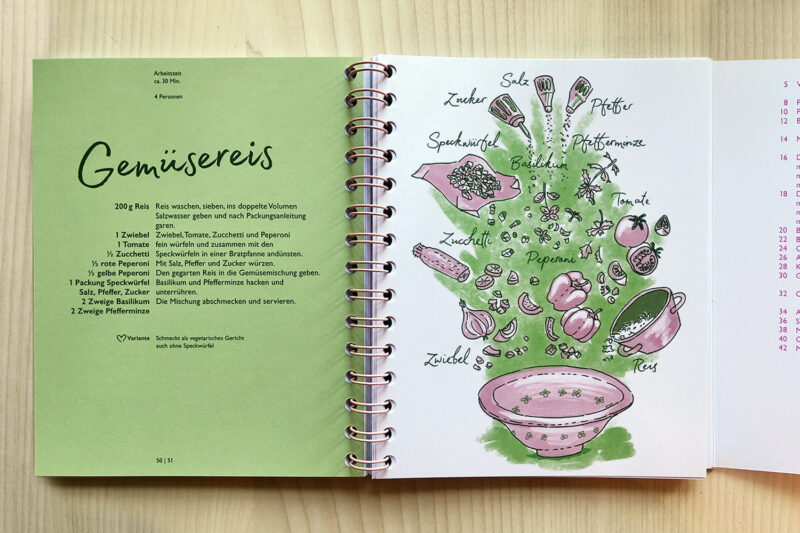 Arbeitszeit
ca. 30 Min.
4 Personen
Gemüsereis
200 g Reis Reis waschen, sieben, ins doppelte Volumen
Salzwasser geben und nach Packungsanleitung
garen.
1 Zwiebel Zwiebel, Tomate, Zucchetti und Peperoni
1 Tomate fein würfeln und zusammen mit den
½ Zucchetti Speckwürfeln in einer Bratpfanne andünsten.
½ rote Peperoni Mit Salz, Pfeffer und Zucker würzen.
½ gelbe Peperoni Den gegarten Reis in die Gemüsemischung geben.
1 Packung Speckwürfel Basilikum und Pfefferminze hacken und
Salz, Pfeffer, Zucker unterrühren.
2 Zweige Basilikum Die Mischung abschmecken und servieren.
2 Zweige Pfefferminze
Variante Schmeckt als vegetarisches Gericht
auch ohne Speckwürfel
50 | 51
Salz
Zucker
Pfeffer
Speckwürfel
Pfefferminze
Basilikum
Tomate
Zucchetti
Peperoni
Zwiebel
Reis
5 V
8 F
10 F
12 B
14 M
16 D
18 D
20 B
22 B
24 G
26 A
28 K
30 G
32 G
34 A
36 S
38 M
40 G
42 M